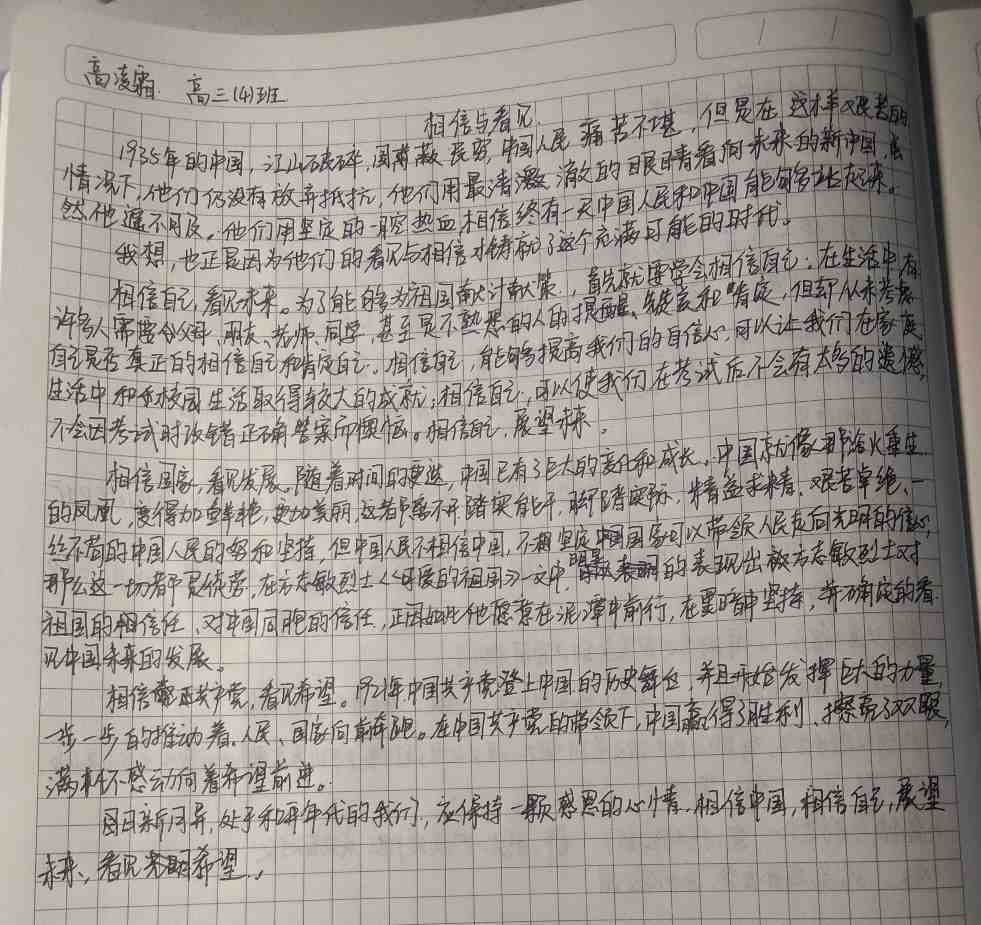 高凌霜 高三(4)班
相信与看见
1935年的中国,江山破碎,国蔽民穷,中国人民痛苦不堪,但是在这样艰苦的
情况下,他们仍没有放弃抵抗,他们用最清澈的眼睛看向未来的新中国,虽
然他遥不可及。他们用坚定的一腔热血相信终有一天中国人民和中国能够站起来。
我想,也正是因为他们的看见与相信才铸就了这个充满可能的时代。
相信自己,看见未来。为了能够为祖国献计献策,首先就要学会相信自己;在生活中有
许多人需要父母、朋友、老师、同学,甚至是不熟悉的人的提醒、和肯定,但却从未考虑
自己是否真正的相信自己和肯定自己。相信自己,能够提高我们的自信心,可以让我们在家庭
生活中和在校园生活取得较大的成就;相信自己,可以使我们在考试后不会有太多的遗憾,
不会因考试时改错正确答案而懊恼。相信自己,展望未来。
相信国家,看见发展。随着时间的更迭,中国已有了巨大的变化和成长。中国就像那浴火重生
的凤凰,变得加鲜艳,更加美丽,这都离不开踏实肯干,脚踏实际,精益求精、艰苦卓绝、一
丝不苟的中国人民的努和坚持。但中国人民不相信中国,不坚定中国国家可以带领人民走向光明的信心,
那么这一切都是徒劳。在方志敏烈士《可爱的祖国》一文中,明显的表现出方志敏烈士对
祖国的相信任、对中国同胞的信任,正因如此他愿意在泥潭中前行,在黑暗中坚持,并确定的看
见中国未来的发展。
相信共产党,看见希望。1921年中国共产党登上中国的历史舞台,并且开始发挥巨大的力量,
一步一步的推动着人民、国家向前奔跑。在中国共产党的带领下,中国赢得了胜利、擦亮了双眼,
满怀感动向着希望前进。
日新月异,处于和平年代的我们,应保持一颗感恩的心情,相信中国,相信自己,展望
未来,看见光明希望。